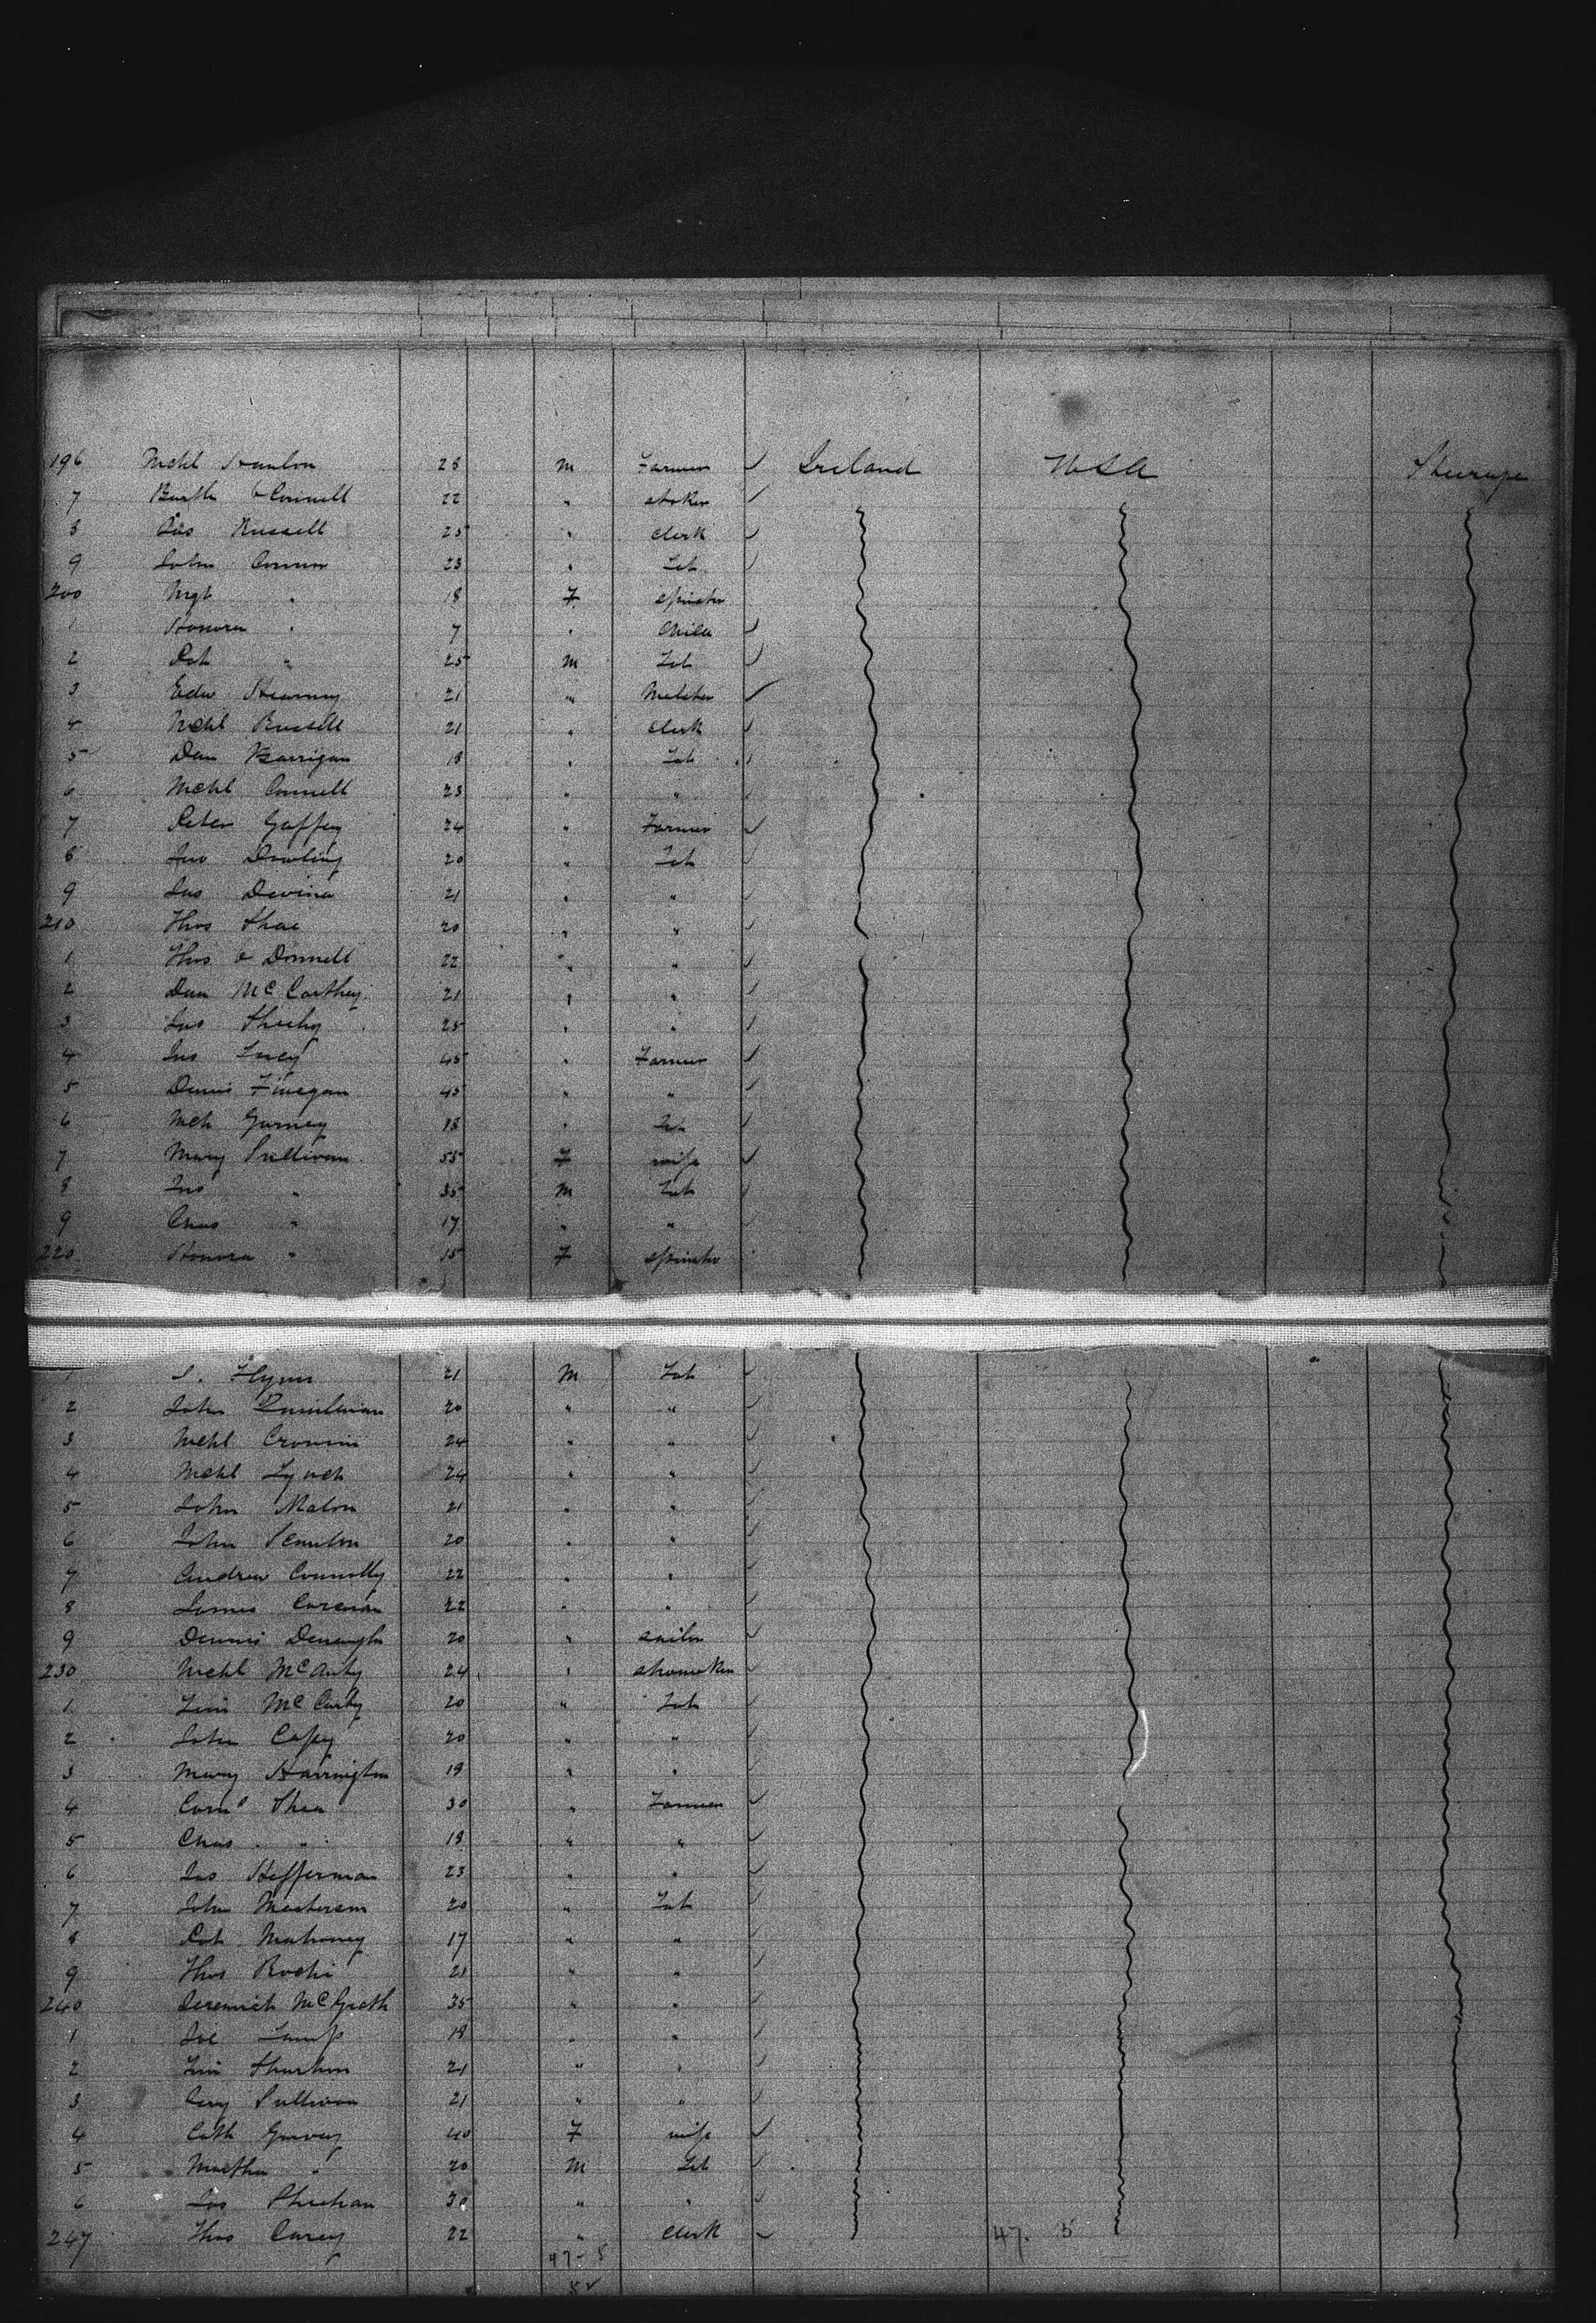 196 Mchl Hanlon 28 m Farmer Ireland USA Steerage
7 Barth O Connell 22 " stoker
8 Jas Russell 25 " clerk
9 John Connor 23 " Lab
200 Mgt " 18 F spinster
1 Honora " 7 " child
2 Pat " 25 m Lab
3 Edw Kearney 21 "
4 Mchl Russell 21 " clerk
5 Dan 18 " Lab
6 Mchl Connell 23 " "
7 Peter Gaffey 24 " Farmer
8 Jno Dowling 20 " Lab
9 Jas Devine 21 " "
210 Thos Shae 20 " "
1 Thos O Donnell 22 " "
2 Dan McCarthey 21 " "
3 Jas Sheehy 25 " "
4 Jno Lucy 45 " Farmer
5 Dennis Finegan 45 " "
6 Mch Gurney 18 " Lab
7 Mary Sullivan 55 F wife
8 Jno " 35 m Lab
9 Chas " 17 " "
220 Honora " 15 F spinster
1 Flynn 21 m Lab
2 John 20 " "
3 Mchl Cronin 24 " "
4 Mchl Lynch 24 " "
5 John Malon 21 " "
6 John Scanlon 20 " "
7 Andrew Connolly 22 " "
8 James Corcoran 22 " "
9 Dennis 20 " sailor
230 Mchl 24 " shomaker
1 Tim McCarty 20 " Lab
2 John 20 " "
3 Mary Harrington 19 " "
4 Corns Shea 30 " Farmer
5 Chas " 18 " "
6 Jas Hefferman 23 " "
7 John Masterson 20 " Lab
8 Pat Mahoney 17 " "
9 Thos Rochi 21 " "
240 Jeremiah McGrath 35 " "
1 Joe 18 " "
2 Tim 21 " "
3 Sullivan 21 " "
4 Cath Garvey 40 F wife
5 " 20 m Lab
6 Jas Sheehan 30 " "
247 Thos Carey 22 " clerk 47. 5
47-5